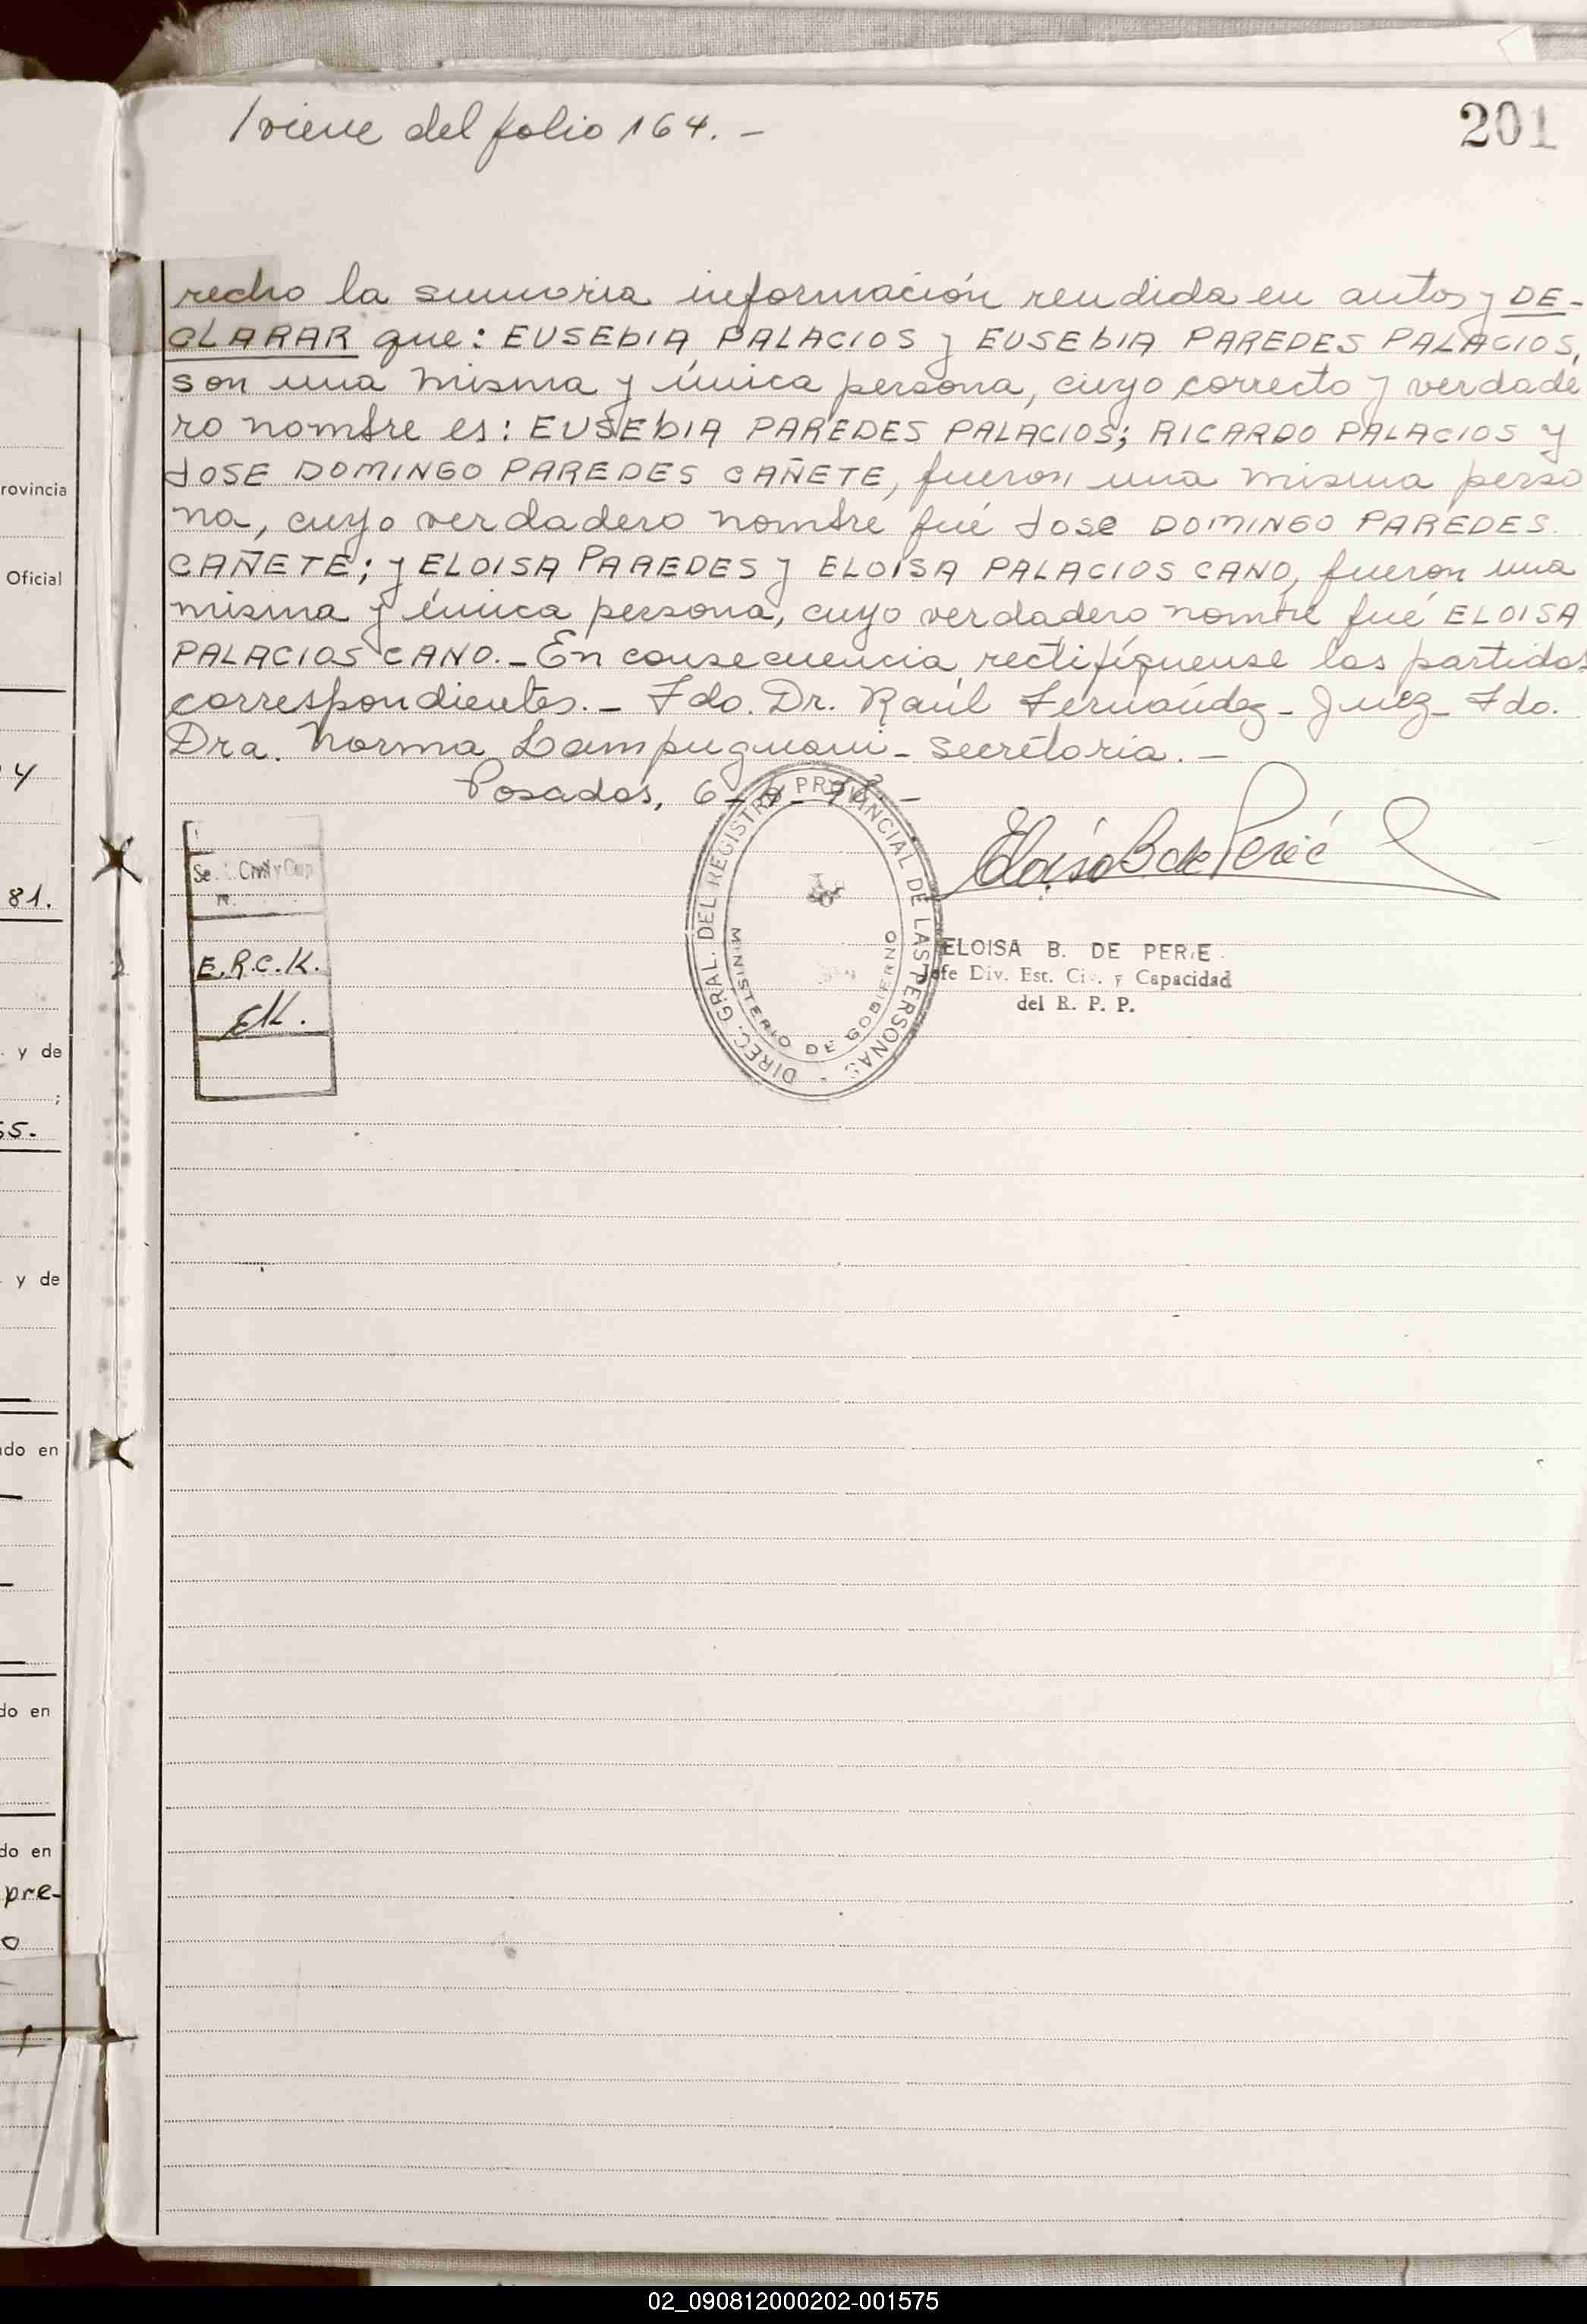 /viene del folio 164. -
201
recho la sumaria información rendida en autos y DE-
CLARAR que: EUSEbIA PALACIOS y EUSEbIA PAREDES PALACIOS,
son una misma y única persona, cuyo correcto y verdade
ro nombre es: EUSEbIA PAREDES PALACIOS; RICARDO PALACIOS y
JOSE DOMINGO PAREDES CAÑETE, fueron una misma perso
na, cuyo verdadero nombre fué JOSe DOMINGO PAREDES
CAÑETE; y ELOISA PAREDES y ELOISA PALACIOS CANO, fueron una
misma y única persona, cuyo verdadero nombre fué ELOISA
PALACIOS CANO. - En consecuencia rectifíquense las partidas
correspondientes. - Fdo. Dr. Raúl Fernández - Juez - Fdo.
Dra. Norma Lampugnani - Secretaria. -
Posadas, 6
DIREC. GRAL. DEL REGISTRO PROVINCIAL DE LAS PERSONAS
MINISTERIO DE GOBIERNO
Eloisa B de Perié
ELOISA B. DE PERIE
Jefe Div. Est. Civ. y Capacidad
del R. P. P.
Civil y Cap
E.R.C.K.
EK.
rovincia
Oficial
4
81.
y de
;
55.
y de
ado en
do en
do en
pre-
o
02_090812000202-001575